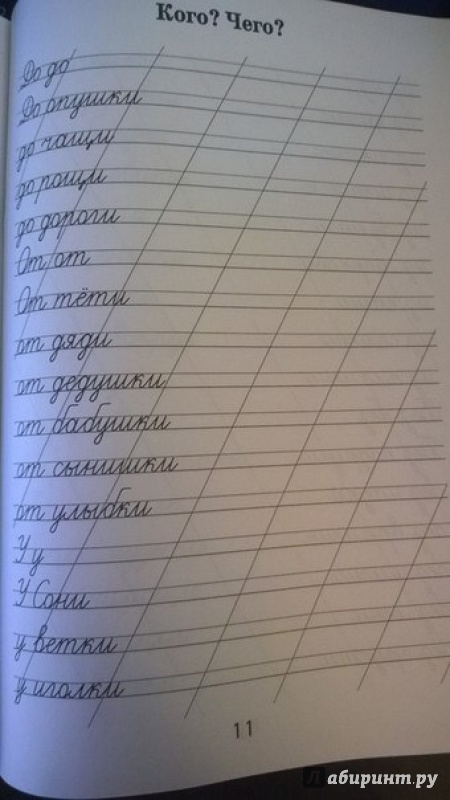 Кого? Чего?
До до
До опушки
до чащи
до рощи
до дороги
От от
От тёти
от дяди
от дедушки
от бабушки
от сынишки
от улыбки
У у
У Сони
у ветки
у иголки
11
Лабиринт.ру